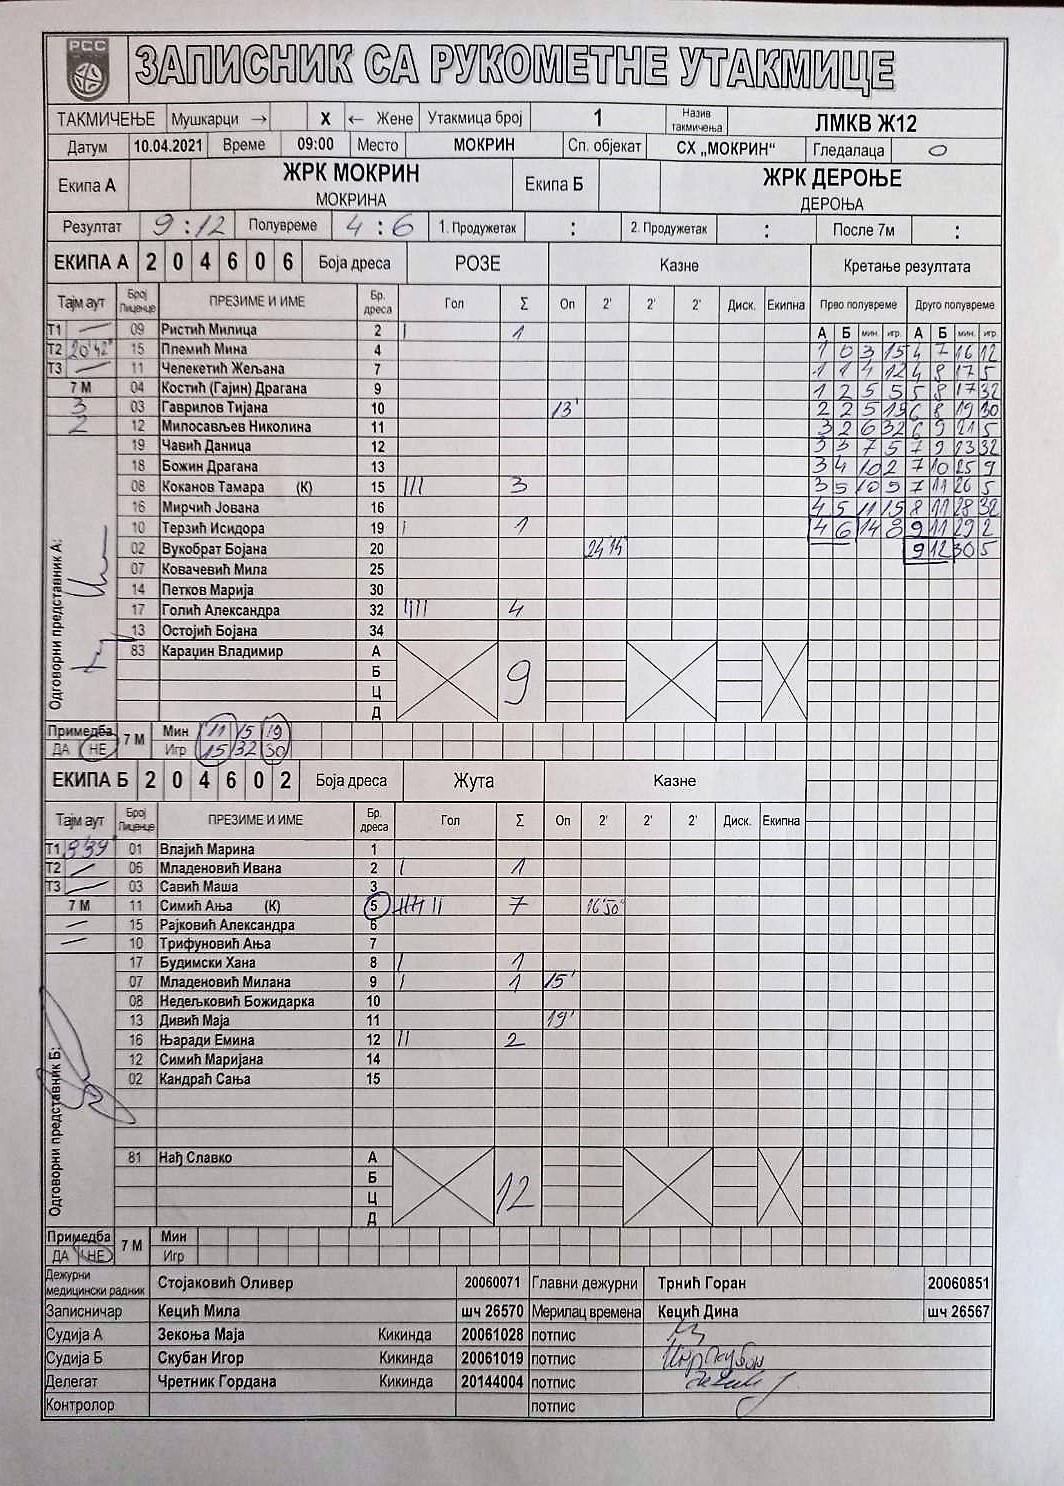 РСС
ЗАПИСНИК СА РУКОМЕТНЕ УТАКМИЦЕ
ТАКМИЧЕЊЕ Мушкарци → X ← Жене Утакмица број 1 Назив такмичења ЛМКВ Ж12
Датум 10.04.2021 Време 09:00 Место МОКРИН Сп. објекат СХ „МОКРИН“ Гледалаца 0
Екипа А ЖРК МОКРИН Екипа Б ЖРК ДЕРОЊЕ
МОКРИНА ДЕРОЊА
Резултат 9:12 Полувреме 4:6 1. Продужетак : 2. Продужетак : После 7м :
ЕКИПА А 2 0 4 6 0 6 Боја дреса РОЗЕ Казне Кретање резултата
Тајм аут Број Лиценце ПРЕЗИМЕ И ИМЕ Бр. дреса Гол Σ Оп 2' 2' 2' Диск. Екипна Прво полувреме Друго полувреме
Т1 — 09 Ристић Милица 2 I 1 А Б мин. игр. А Б мин. игр.
Т2 20'42" 15 Племић Мина 4 1 0 3 15 4 7 16 12
Т3 — 11 Челекетић Жељана 7 1 1 4 12 4 8 17 5
7 М 04 Костић (Гајин) Драгана 9 1 2 5 5 5 8 17 32
3 03 Гаврилов Тијана 10 13' 2 2 5 15 6 8 19 30
2 12 Милосављев Николина 11 3 2 6 32 6 9 21 5
19 Чавић Даница 12 3 3 7 5 7 9 23 32
18 Божин Драгана 13 3 4 10 2 7 10 25 9
08 Коканов Тамара (К) 15 III 3 3 5 10 5 7 11 26 5
16 Мирчић Јована 16 4 5 11 15 8 11 28 32
10 Терзић Исидора 19 I 1 4 6 14 8 9 11 29 2
02 Вукобрат Бојана 20 24'14" 9 12 30 5
07 Ковачевић Мила 25
14 Петков Марија 30
17 Голић Александра 32 IIII 4
13 Остојић Бојана 34
83 Караџин Владимир А
Б
Ц
Д
9
Одговорни представник А:
Примедба 7 М Мин 11 15 19
ДА НЕ Игр 15 32 30
ЕКИПА Б 2 0 4 6 0 2 Боја дреса Жута Казне
Тајм аут Број Лиценце ПРЕЗИМЕ И ИМЕ Бр. дреса Гол Σ Оп 2' 2' 2' Диск. Екипна
Т1 3'39 01 Влајић Марина 1
Т2 — 06 Младеновић Ивана 2 I 1
Т3 — 03 Савић Маша 3
7 М 11 Симић Ања (К) 5 IIIII II 7 16'50"
— 15 Рајковић Александра 6
— 10 Трифуновић Ања 7
17 Будимски Хана 8 I 1
07 Младеновић Милана 9 I 1 15'
08 Недељковић Божидарка 10
13 Дивић Маја 11 19'
16 Њаради Емина 12 II 2
12 Симић Маријана 14
02 Кандраћ Сања 15
81 Нађ Славко А
Б
Ц
Д
12
Одговорни представник Б:
Примедба 7 М Мин
ДА НЕ Игр
Дежурни медицински радник Стојаковић Оливер 20060071 Главни дежурни Трнић Горан 20060851
Записничар Кецић Мила шч 26570 Мерилац времена Кецић Дина шч 26567
Судија А Зекоња Маја Кикинда 20061028 потпис
Судија Б Скубан Игор Кикинда 20061019 потпис Игор Скубан
Делегат Чретник Гордана Кикинда 20144004 потпис
Контролор потпис